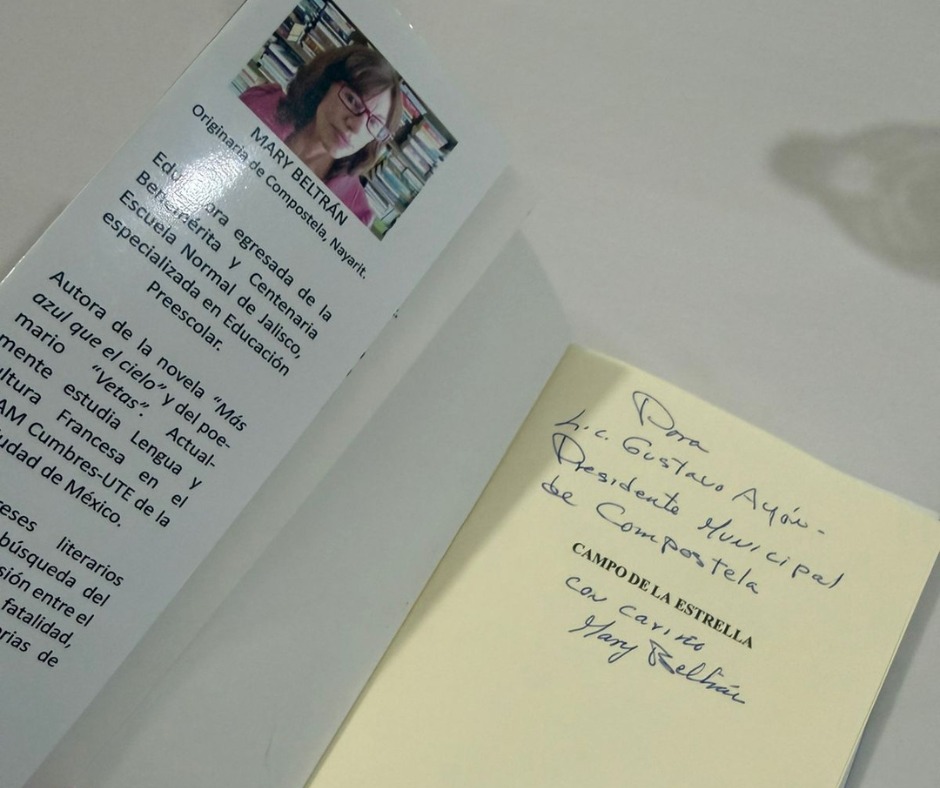 MARY BELTRÁN
Originaria de Compostela, Nayarit.
Educadora egresada de la
Benemérita y Centenaria
Escuela Normal de Jalisco,
especializada en Educación
Preescolar.
Autora de la novela “Más
azul que el cielo” y del poe-
mario “Vetas”. Actual-
mente estudia Lengua y
ltura Francesa en el
AM Cumbres-UTE de la
udad de México.
eses literarios
búsqueda del
sión entre el
fatalidad,
orias de
Para
Lic. Gustavo Ayón-
Presidente Municipal
de Compostela
CAMPO DE LA ESTRELLA
con cariño
Mary Beltrán